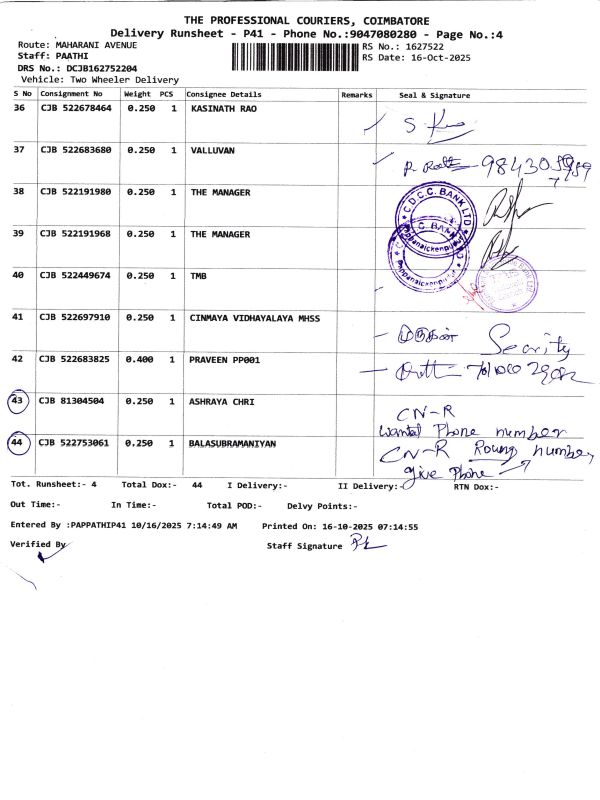 THE PROFESSIONAL COURIERS, COIMBATORE
Delivery Runsheet - P41 - Phone No.:9047080280 - Page No.:4
Route: MAHARANI AVENUE
RS No.: 1627522
Staff: PAATHI
RS Date: 16-Oct-2025
DRS No.: DCJB162752204
Vehicle: Two Wheeler Delivery
S No Consignment No Weight PCS Consignee Details Remarks Seal & Signature
36 CJB 522678464 0.250 1 KASINATH RAO
37 CJB 522683680 0.250 1 VALLUVAN
38 CJB 522191980 0.250 1 THE MANAGER
C.D.C.C. BANK LTD
Pappanaickenpudur
39 CJB 522191968 0.250 1 THE MANAGER
40 CJB 522449674 0.250 1 TMB
41 CJB 522697910 0.250 1 CINMAYA VIDHAYALAYA MHSS
Secrity
42 CJB 522683825 0.400 1 PRAVEEN PP001
43 CJB 81304504 0.250 1 ASHRAYA CHRI
CN-R
wanted Phone number
44 CJB 522753061 0.250 1 BALASUBRAMANIYAN
CN-R Roung number
give Phone
Tot. Runsheet:- 4 Total Dox:- 44 I Delivery:- II Delivery:- RTN Dox:-
Out Time:- In Time:- Total POD:- Delvy Points:-
Entered By :PAPPATHIP41 10/16/2025 7:14:49 AM Printed On: 16-10-2025 07:14:55
Verified By Staff Signature